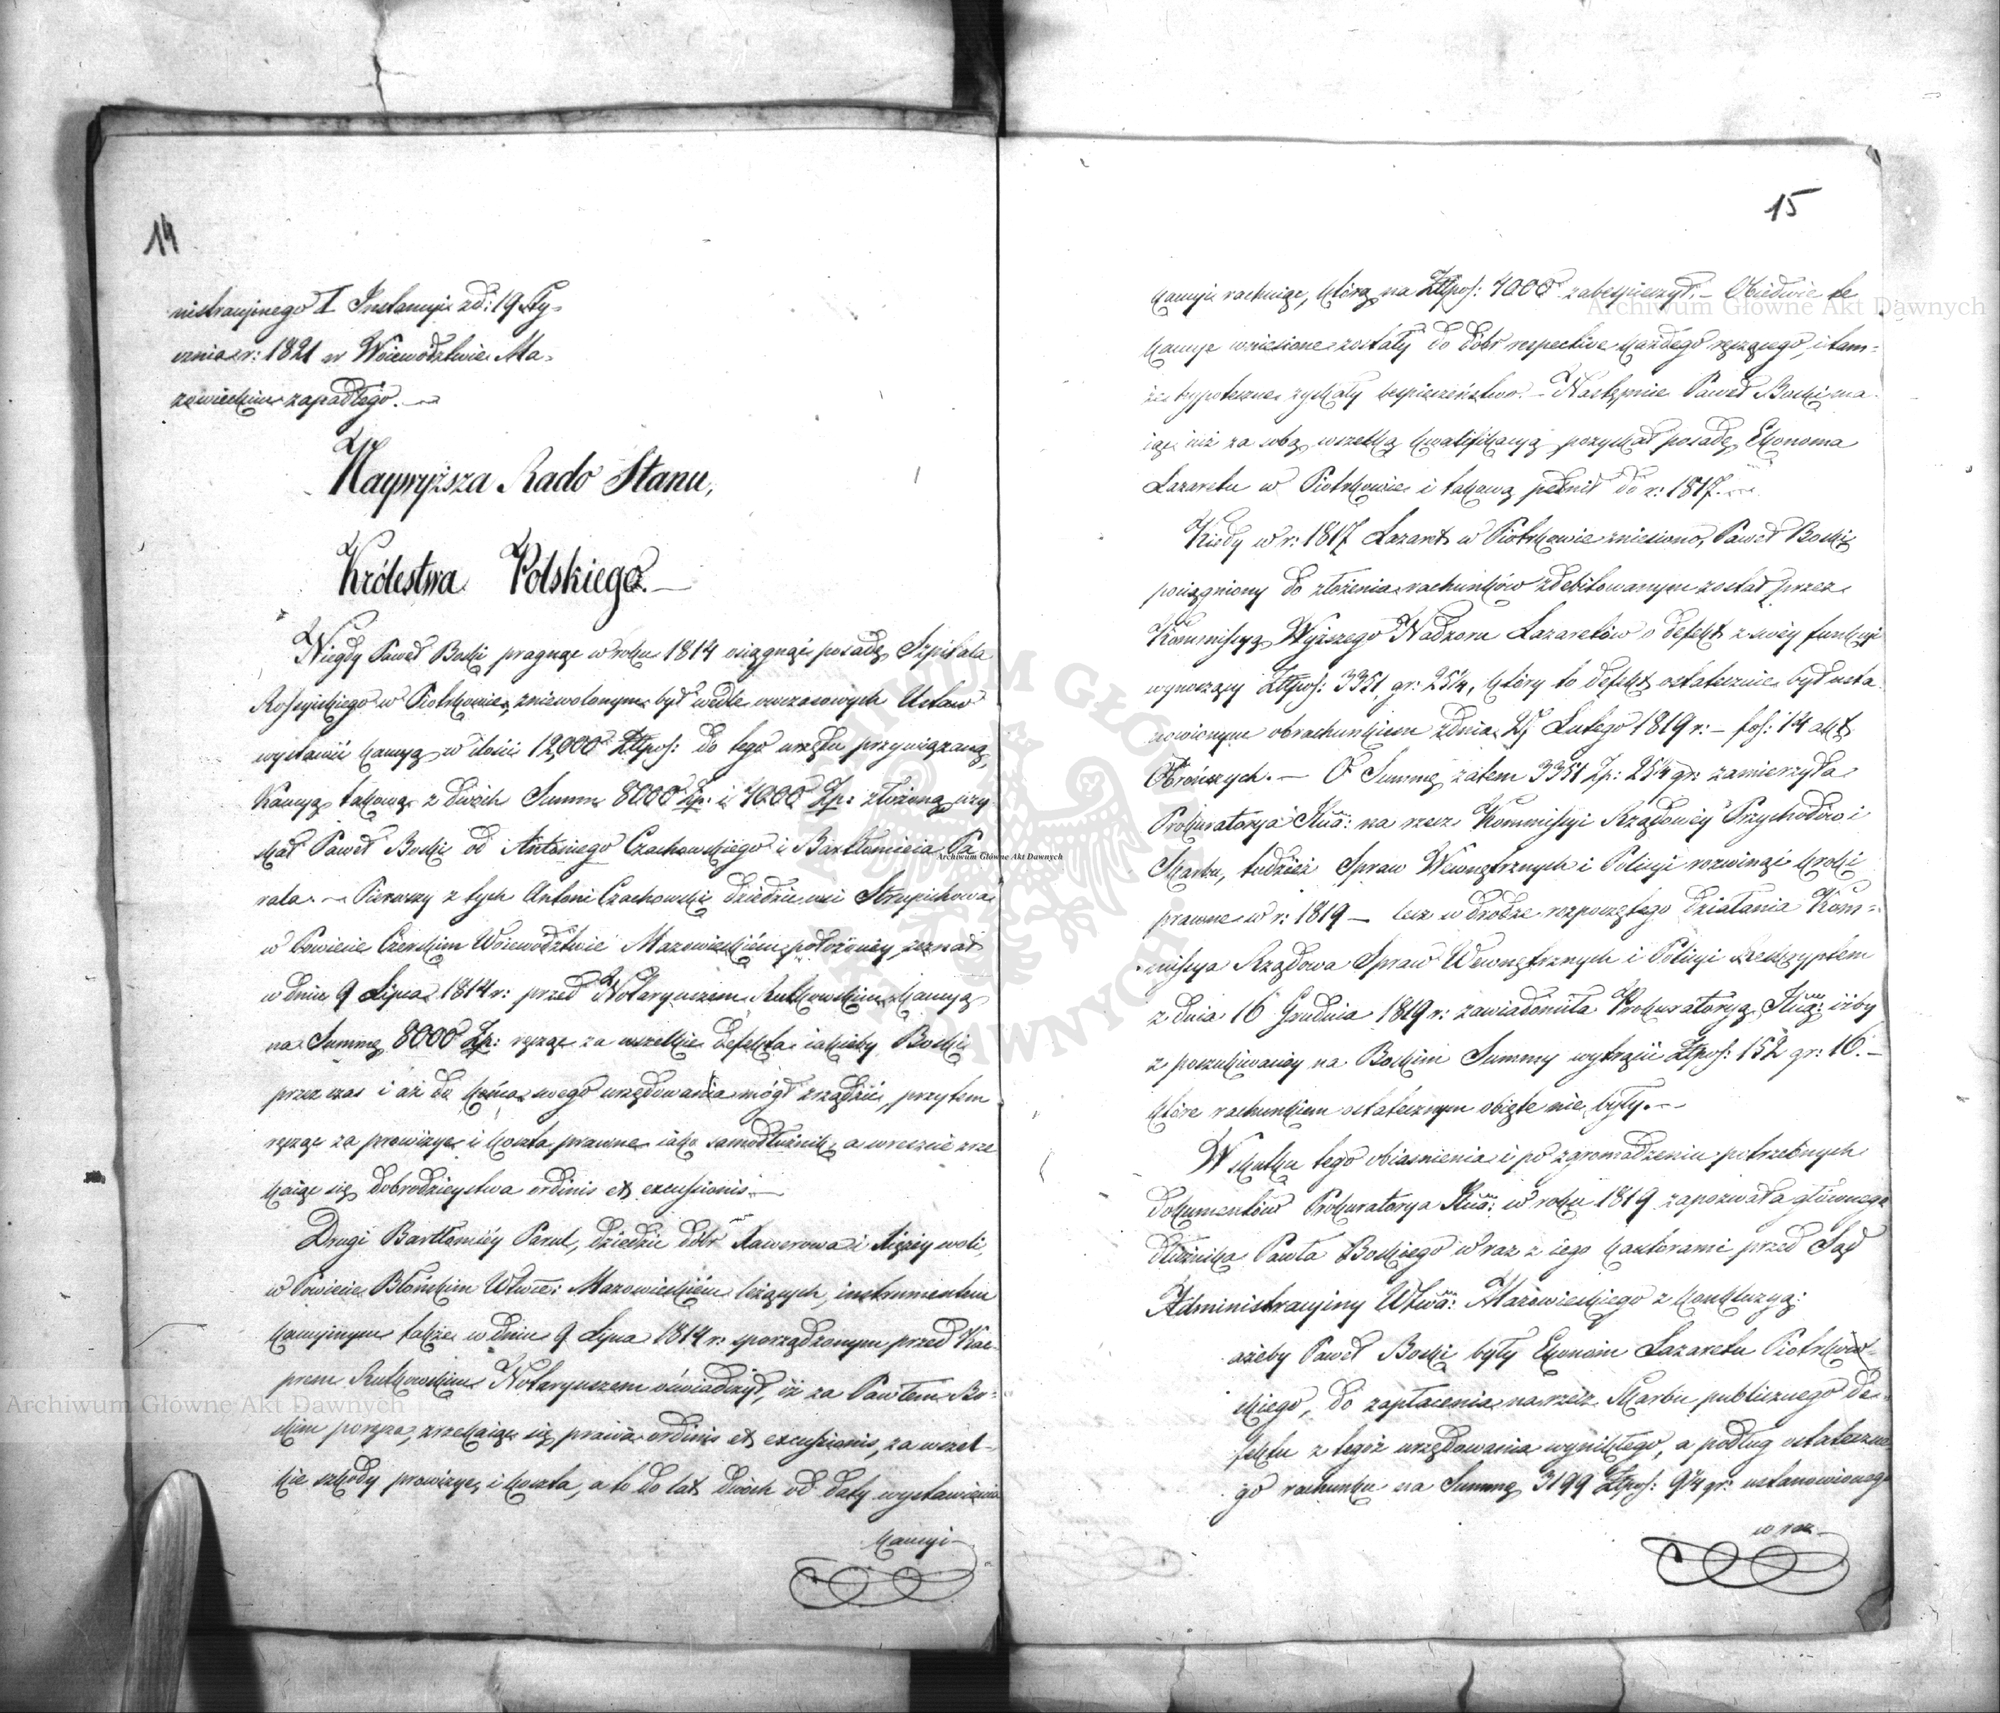 14
nistracyinego I Instancyi z d: 19 Sty-
cznia r: 1821 w Woiewództwie Ma-
zowieckim zapadłego. —
Naywyższa Rado Stanu,
Królestwa Polskiego. —
Niegdy Paweł Bocki pragnąc w roku 1814 osiągnąć posadę Szpitala
Rossyiskiego w Piotrkowie, zniewolonym był wedle owczasowych Ustaw
wystawić kaucyą w ilości 12,000 Złłpos: do tego urzędu przywiązaną
Kaucyą takową z dwóch Summ 8000 Zp: i 4000 Zp: złożoną uzy-
skał Paweł Bocki od Antoniego Czachowskiego i Bartłomieia Pa-
rula. — Pierwszy z tych Antoni Czachowski dziedzic wsi Strupichowa
w Powiecie Czerskim Woiewództwie Mazowieckiém położoney, zeznał
w dniu 9 Lipca 1814 r: przed Notaryuszem Rutkowskim kaucyą
na Summę 8000 Zp: ręcząc za wszelkie defekta iakieby Bocki
przez czas i aż do końca swego urzędowania mógł zrządzić, przytem
ręcząc za prowizye i koszta prawne iako samodłużnik, a wreszcie zrze-
kaiąc się dobrodzieystwa ordinis et excussionis. —
Drugi Bartłomiéy Parul, dziedzic dóbr Xawerowa i Xiężey woli,
w Powiecie Błońskim Wtwie: Mazowieckiém leżących, instrumentem
kaucyinym także w dniu 9 Lipca 1814 r: sporządzonym przed Kac-
prem Rutkowskim Notaryuszem oświadczył, iż za Pawłem Bo-
ckim poręcza, zrzekaiąc się prawa ordinis et excussionis, za wszel-
kie szkody prowizye, i koszta, a to do lat dwóch od daty wystawienia
kaucyi
15
kaucyi rachuiąc, którą na Złłpos: 4000 zabespieczył. — Obiedwie te
kaucye wniesione zostały do dóbr respective każdego ręczącego, i tam-
że hypoteczne zyskały bespieczeństwo. — Następnie Paweł Bocki ma-
iąc iuż za sobą wszelką kwalifikacyą pozyskał posadę Ekonoma
Lazaretu w Piotrkowie i takową pełnił do r: 1817. —
Kiedy w r: 1817 Lazaret w Piotrkowie zniesiono, Paweł Bocki
pociągniony do złożenia rachunków zdebitowanym został przez
Kommissyą Wyższego Nadzoru Lazaretów o defekt z swéy funkcyi
wynoszący Złłpos: 3351, gr: 25¼, który to defekt ostatecznie był usta-
nowionym obrachunkiem z dnia Lutego 1819 r: — fos: 14 akt
Obrończych. — O Summę zatem 3351 Zp: 25¼ gr: zamierzyła
Prokuratorya Kró: na rzecz Kommissyi Rządowéy Przychodów i
Skarbu, tudzież Spraw Wewnętrznych i Policyi rozwinąć kroki
prawne w r: 1819 — lecz w drodze rozpoczętego działania Kom-
missya Rządowa Spraw Wewnętrznych i Policyi Reskryptem
z dnia 16 Grudnia 1819 r: zawiadomiła Prokuratoryą Kró: iżby
z poszukiwanéy na Bockim Summy wytrącić Złłpos: 152 gr: 16. —
które rachunkiem ostatecznym obięte nie były. —
W skutku tego obiasnienia i po zgromadzeniu potrzebnych
dokumentów Prokuratorya Kró: w roku 1819 zapozwała głównego
dłużnika Pawła Bockiego wraz z iego kautorami przed Sąd
Administracyiny Wtwa: Mazowieckiego z konkluzyą:
ażeby Paweł Bocki były Ekonom Lazaretu Piotrkow-
skiego, do zapłacenia na rzecz Skarbu publicznego de-
fektu z tegóż urzędowania wynikłego, a podług ostateczne-
go rachunku na Summę 3199 Złłpos: 9¼ gr: ustanowionego
wraz
Archiwum Główne Akt Dawnych
Archiwum Główne Akt Dawnych
Archiwum Główne Akt Dawnych
ARCHIWUM GŁÓWNE AKT DAWNYCH